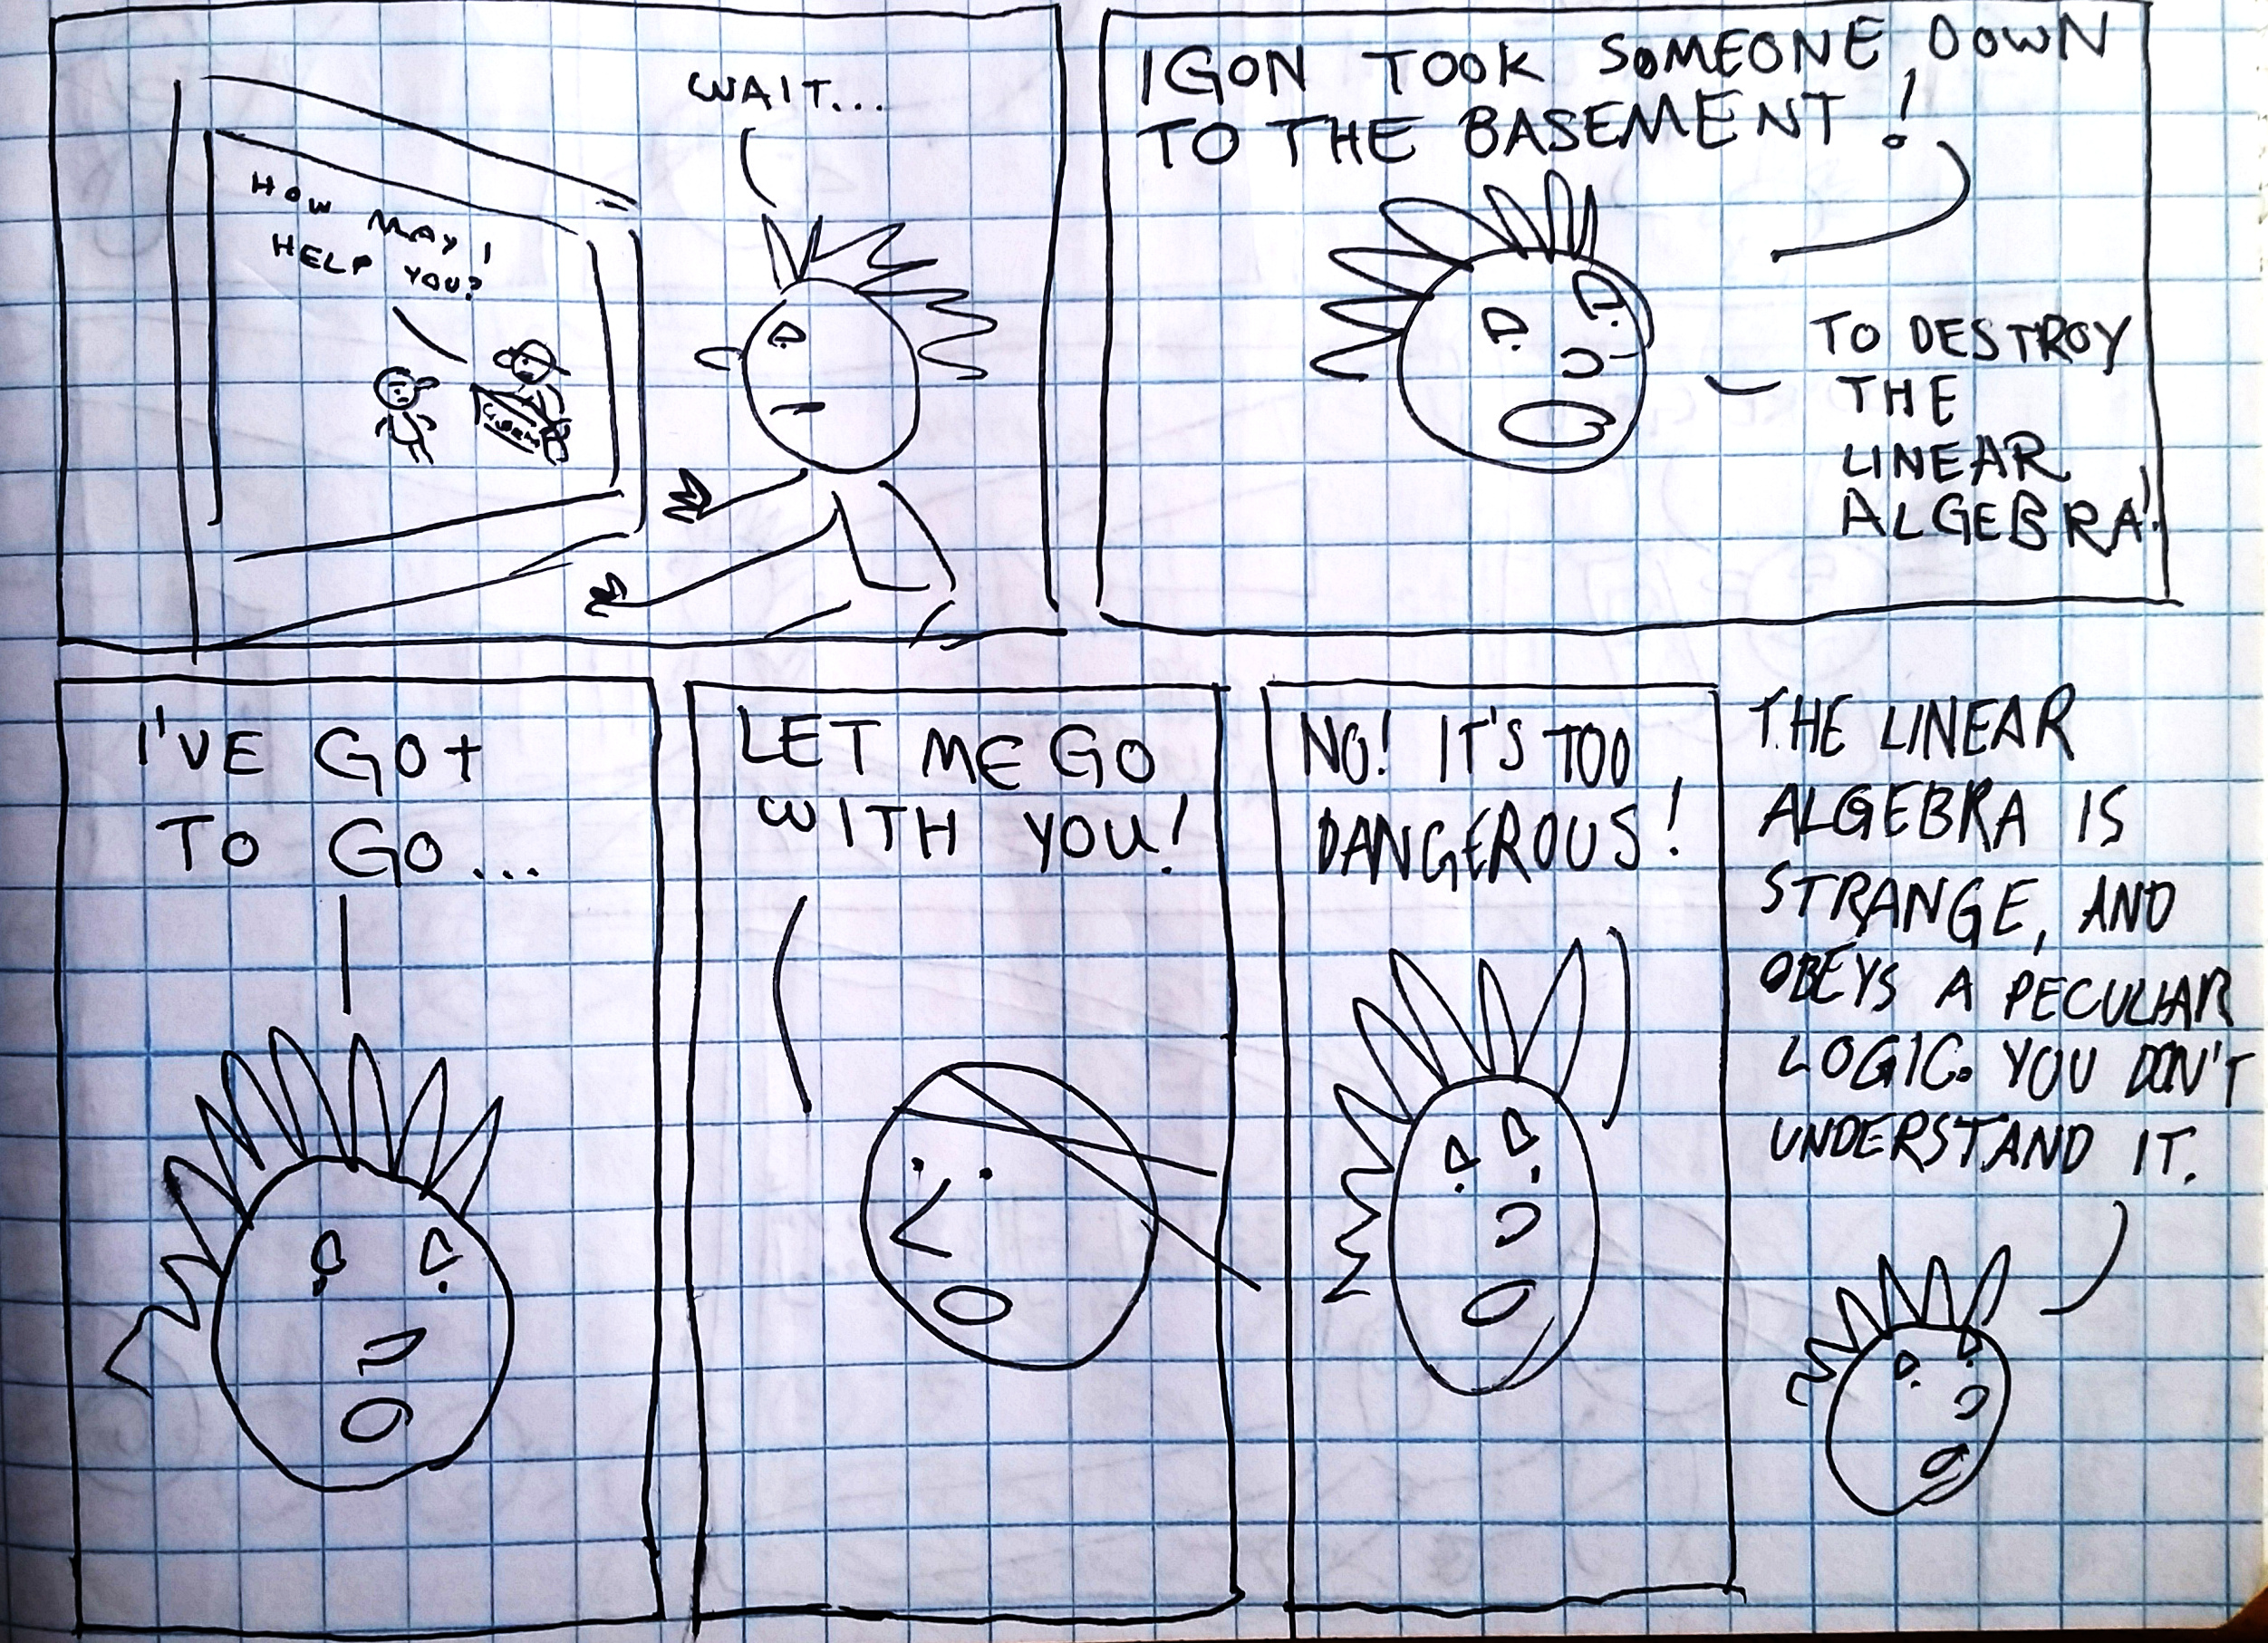 WAIT...
HOW MAY I
HELP YOU?
IGON TOOK SOMEONE DOWN
TO THE BASEMENT!
TO DESTROY
THE
LINEAR
ALGEBRA!
I'VE GOT
TO GO...
LET ME GO
WITH YOU!
NO! IT'S TOO
DANGEROUS!
THE LINEAR
ALGEBRA IS
STRANGE, AND
OBEYS A PECULIAR
LOGIC. YOU DON'T
UNDERSTAND IT.